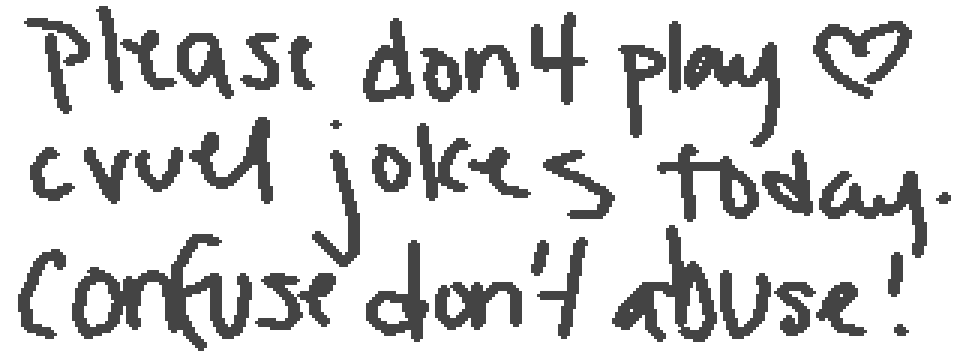 Please don't play ♡
cruel jokes today.
Confuse don't abuse!